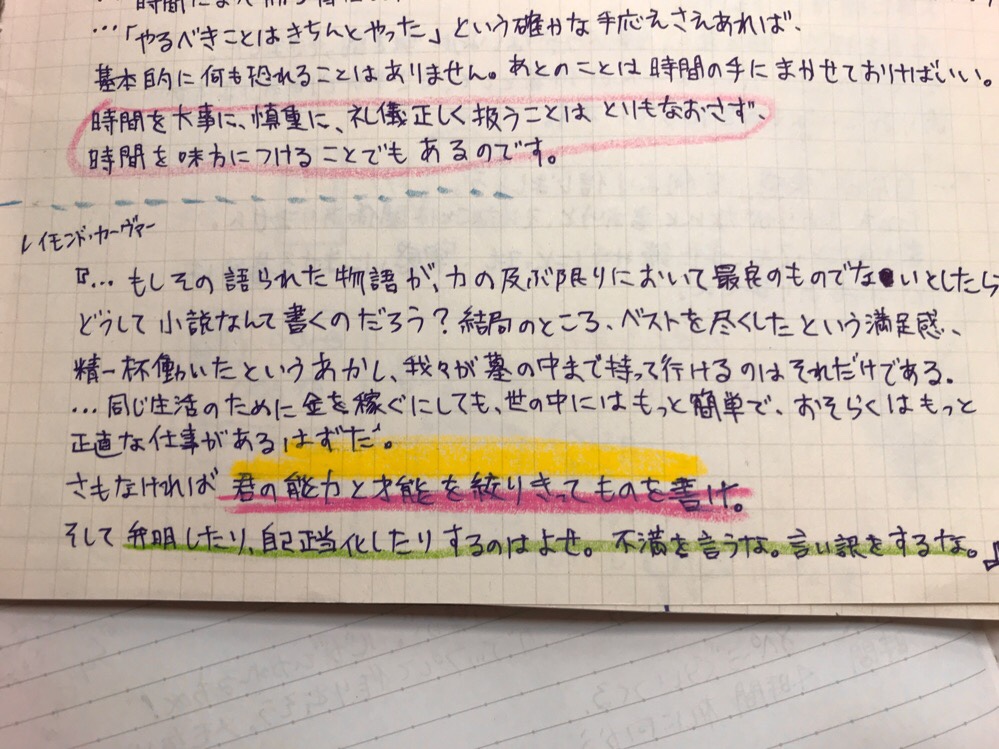 …「やるべきことはきちんとやった」という確かな手応えさえあれば、
基本的に何も恐れることはありません。あとのことは時間の手にまかせておけばいい。
時間を大事に、慎重に、礼儀正しく扱うことはとりもなおさず、
時間を味方につけることでもあるのです。
レイモンド・カーヴァー
『…もしその語られた物語が、力の及ぶ限りにおいて最良のものでないとしたら
どうして小説なんて書くのだろう?結局のところ、ベストを尽くしたという満足感、
精一杯働いたというあかし、我々が墓の中まで持って行けるのはそれだけである。
…同じ生活のために金を稼ぐにしても、世の中にはもっと簡単で、おそらくはもっと
正直な仕事があるはずだ。
さもなければ君の能力と才能を絞りきってものを書け。
そして弁明したり、自己正当化したりするのはよせ。不満を言うな。言い訳をするな。』